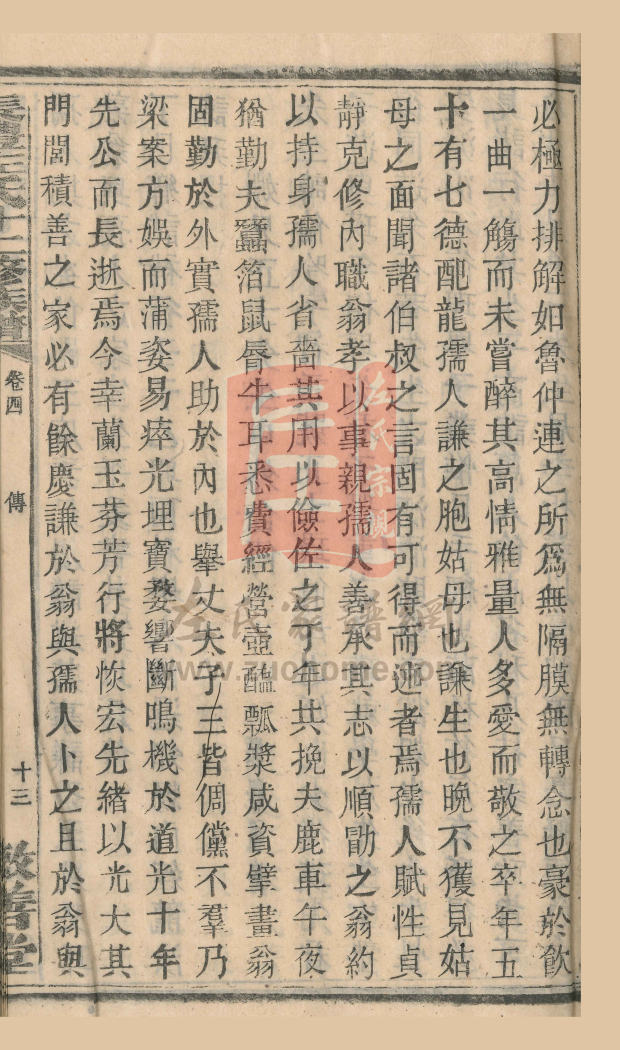 必極力排解如魯仲連之所爲無隔膜無轉念也豪於飲
一曲一觴而未嘗醉其高情雅量人多愛而敬之卒年五
十有七德配龍孺人謙之胞姑母也謙生也晚不獲見姑
母之面聞諸伯叔之言固有可得而述者焉孺人賦性貞
靜克修內職翁孝以事親孺人善承其志以順勖之翁約
以持身孺人省嗇其用以儉佐之丁年共挽夫鹿車午夜
猶勤夫蠶箔鼠脣牛耳悉費經營壺醢瓢漿咸資擘畫翁
固勤於外實孺人助於內也舉丈夫子三皆倜儻不羣乃
梁案方娛而蒲姿易瘁光埋寶婺響斷鳴機於道光十年
先公而長逝焉今幸蘭玉芬芳行將恢宏先緒以光大其
門閭積善之家必有餘慶謙於翁與孺人卜之且於翁與
氏十二修族譜
卷四
傳
十三
敦善堂
左氏宗親
左氏家譜網
www.zuohome.com